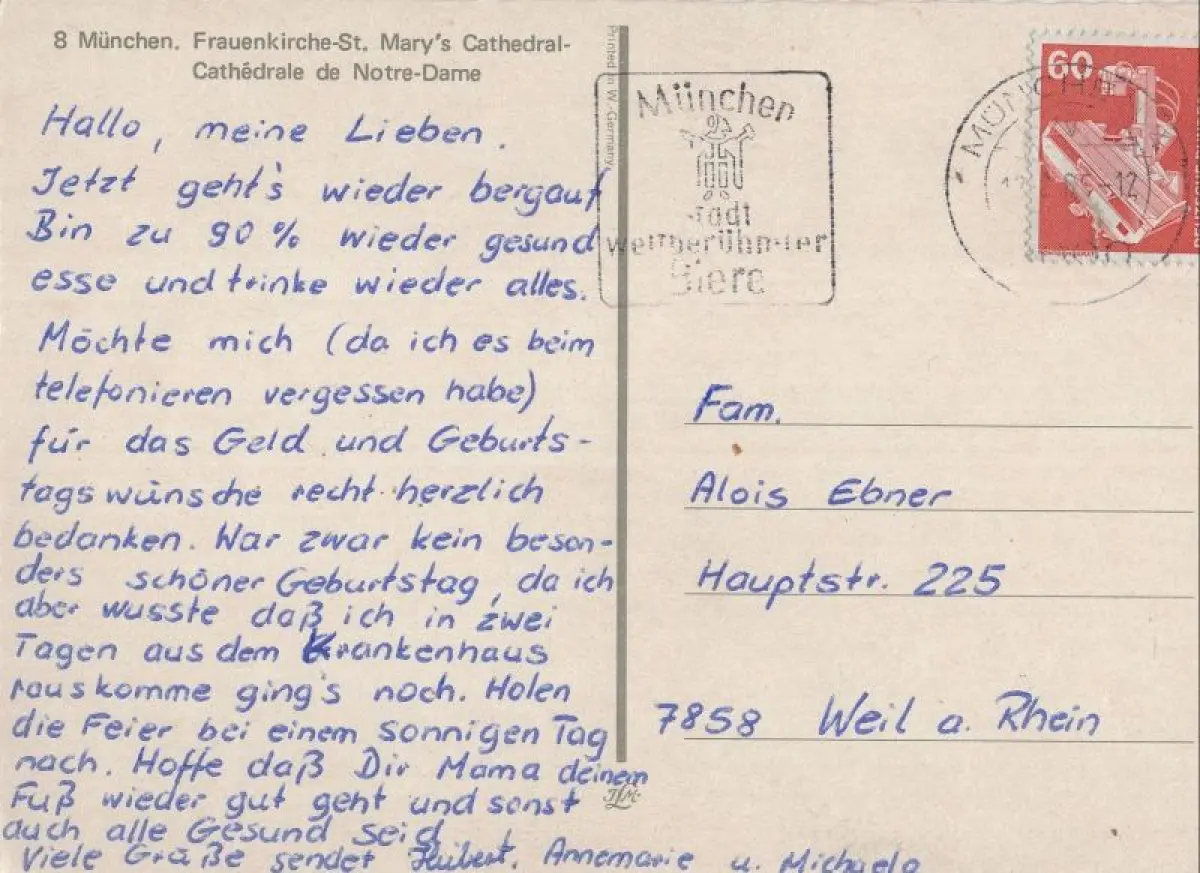 8 München. Frauenkirche-St. Mary's Cathedral-
Cathêdrale de Notre-Dame
Hallo, meine Lieben.
Jetzt geht's wieder bergauf
Bin zu 90% wieder gesund
esse und trinke wieder alles.
Möchte mich (da ich es beim
telefonieren vergessen habe)
für das Geld und Geburts-
tagswünsche recht herzlich
bedanken. War zwar kein beson-
ders schöner Geburtstag, da ich
aber wusste daß ich in zwei
Tagen aus dem Krankenhaus
rauskomme ging's noch. Holen
die Feier bei einem sonnigen Tag
nach. Hoffe daß Dir Mama deinem
Fuß wieder gut geht und sonst
auch alle Gesund seid
Viele Grüße sendet Hubert, Annemarie u. Michaela
Printed in W.-Germany
München
Stadt
weltberühmter
Biere
MÜNCHEN
60
Fam.
Alois Ebner
Hauptstr. 225
7858 Weil a. Rhein